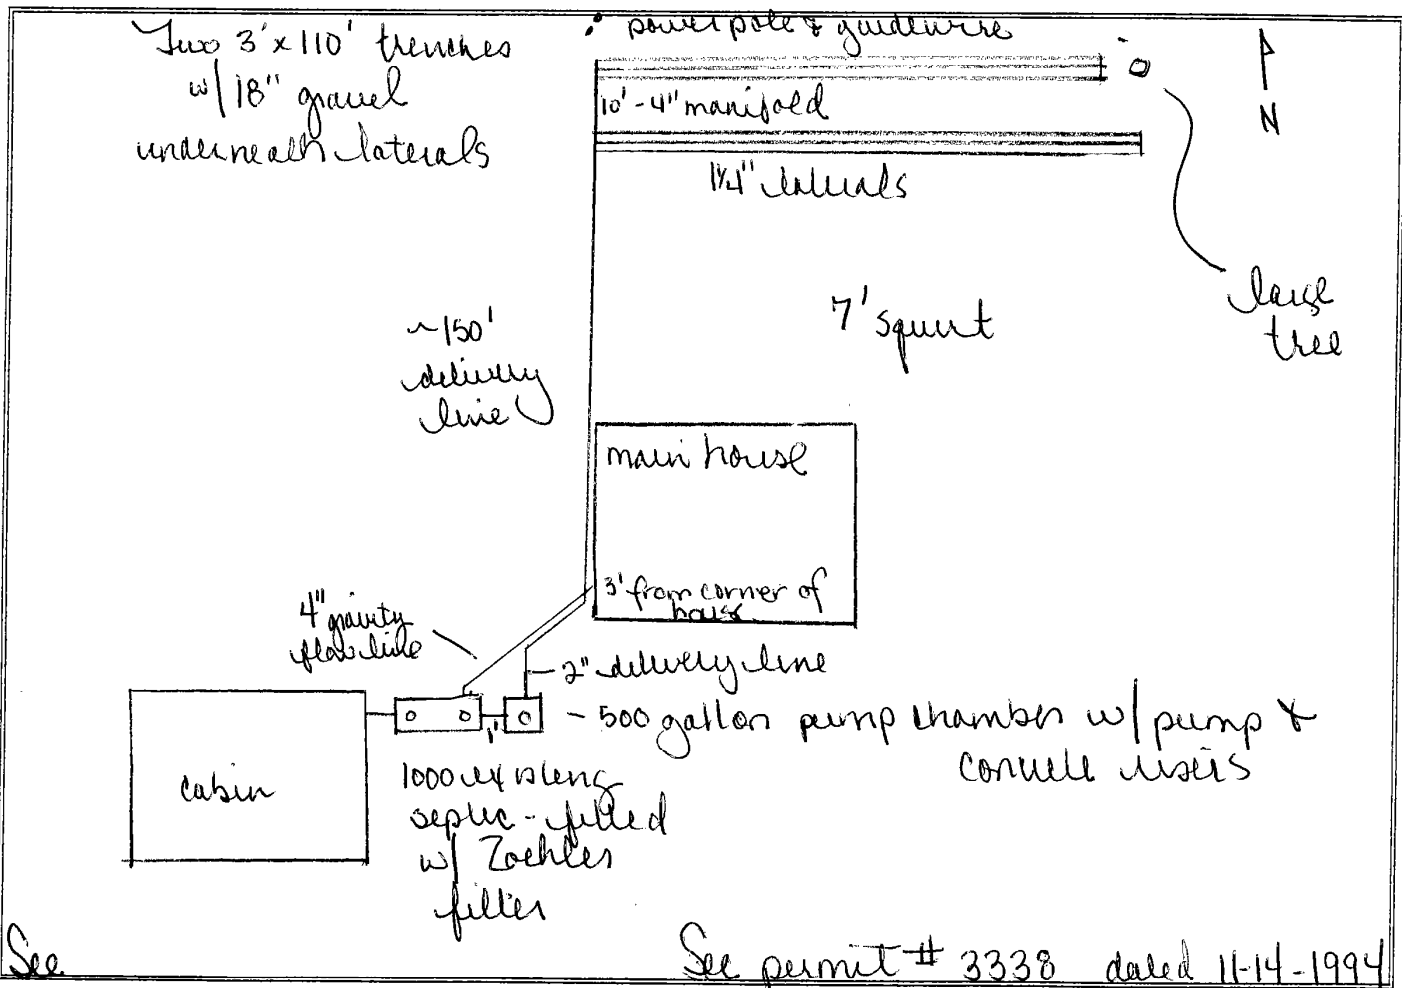 Two 3' x 110' trenches
w/ 18" gravel
underneath laterals
power pole & guidewire
10' - 4" manifold
1¼" laterals
N
large
tree
7' squirt
~150'
delivery
line
main house
3' from corner of
house
4" gravity
flow line
2" delivery line
- 500 gallon pump chamber w/ pump &
concrete risers
1'
cabin
1000 existing
septic - fitted
w/ Zoehler
filter
See
See permit # 3338 dated 11-14-1994